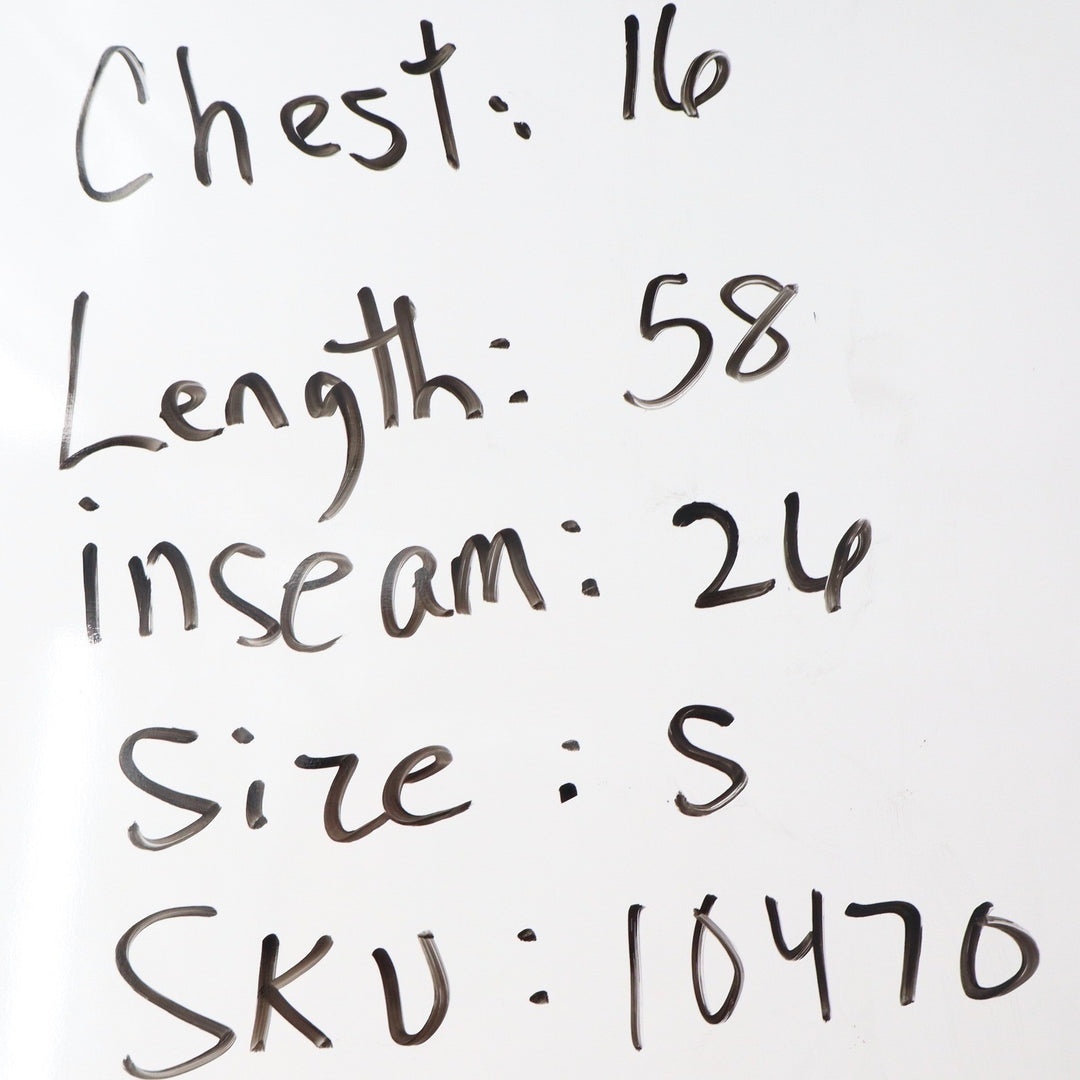 Chest: 16
Length: 58
inseam: 26
Size: S
SKU: 10470